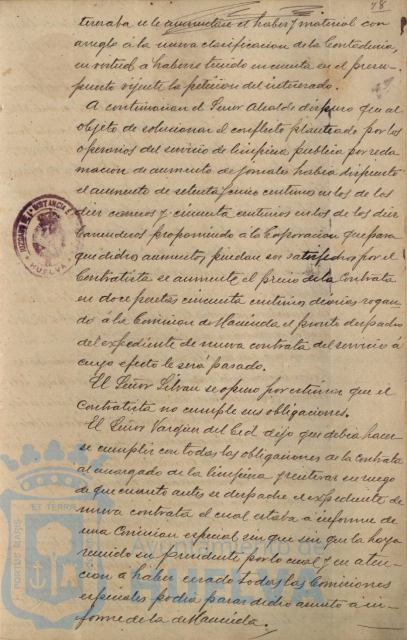 78
teresaba se le aumentase el haber y material con
arreglo á la nueva clasificacion de la Contaduria,
en virtud á haberse tenido en cuenta en el presu-
puesto vijente la peticion del interesado.
A continuacion el Señor Alcalde dispuso que al
objeto de solucionar el conflicto planteado por los
operarios del servicio de limpieza publica por recla
macion de aumento de jornales habia dispuesto
el aumento de setenta y cinco centimos en los de los
diez carreros y cincuenta centimos en los de los diez
barrenderos proponiendo á la Corporacion que para
que dichos aumentos puedan ser satisfechos por el
Contratista se aumente el precio de la Contrata
en doce pesetas cincuenta centimos diarios rogan
do á la Comision de Hacienda el pronto despacho
del expediente de nueva contrata del servicio á
cuyo efecto le será pasado.
El Señor Silvan se opuso por estimar que el
Contratista no cumple sus obligaciones.
El Señor Vazquez del Cid dijo que debia hacer
se cumplir con todas las obligaciones de la contrata
al encargado de la limpieza y reiterar su ruego
de que cuanto antes se despache el expediente de
nueva contrata el cual estaba á informe de
una Comision especial sin que la haya
reunido su presidente por lo cual y en aten-
cion á haber cesado todas las Comisiones
especiales podia pasar dicho asunto a in-
forme de la de Hacienda.
HUELVA
PORTUS MARIS
ET TERRAE
Ayuntamiento de